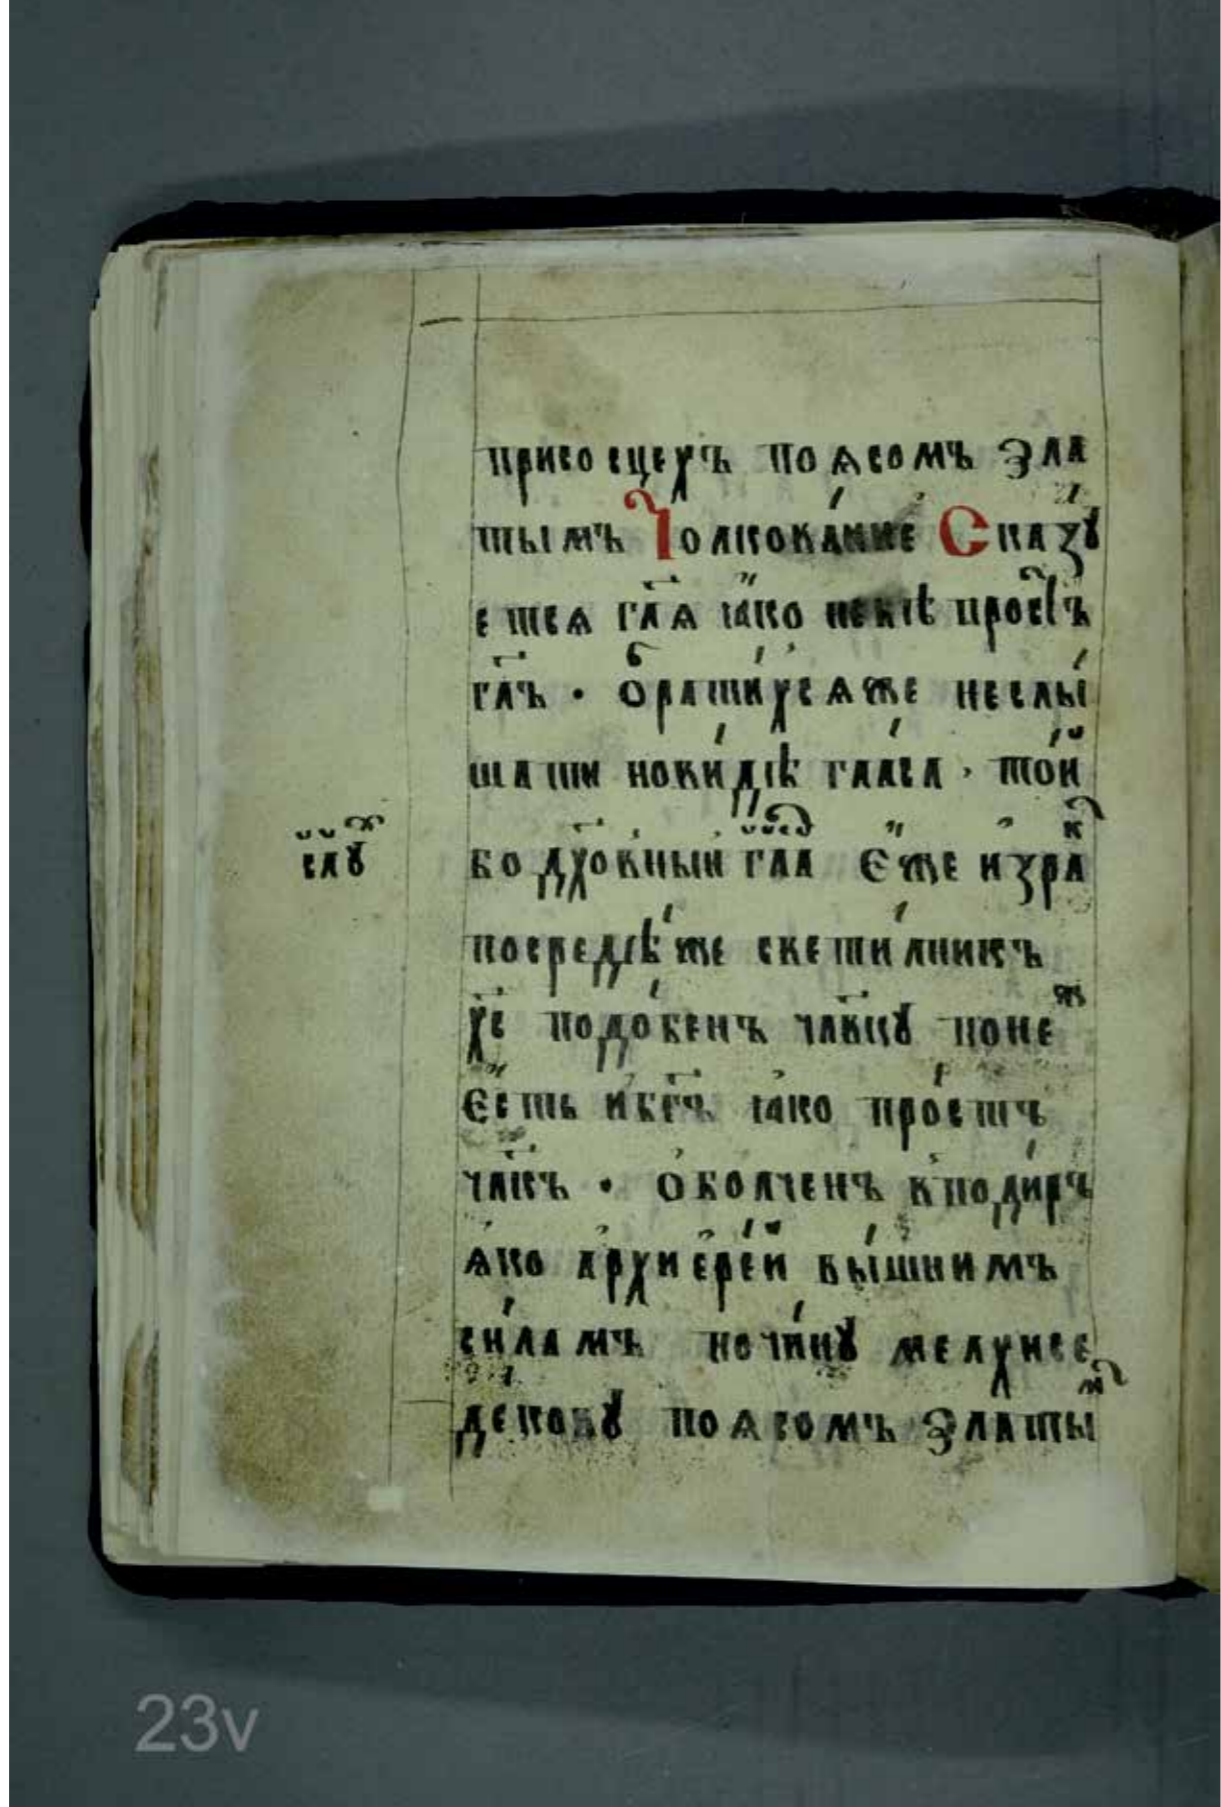 присосцехъ поѧсомъ зла
тымъ Толкова́ние Сказꙋ́
етсѧ гл҃ѧ ꙗ҆́ко не бѣ прос̾тъ
гл҃ъ · ѻб҆рати́хсѧже неслы́
шати но ви́дѣ гла́са · то́й
слꙋⷯ
бо дх҃о́вный гл҃а є҆́же и҆зрⷦ҇а
посредѣ́ же свети́лникъ
хс҃ подо́бенъ чл҃вкꙋ понеⷤ
є҆́сть и҆ бг҃ъ ꙗ҆́ко про́стъ
чл҃къ · ѻ҆болченъ в̾поди́ръ
ѧ҆́ко а҆рхие҆ре́й вы́шнимъ
си́ламъ по чи́нꙋ мелхисе
декову поѧсомъ златыⷨ
23v